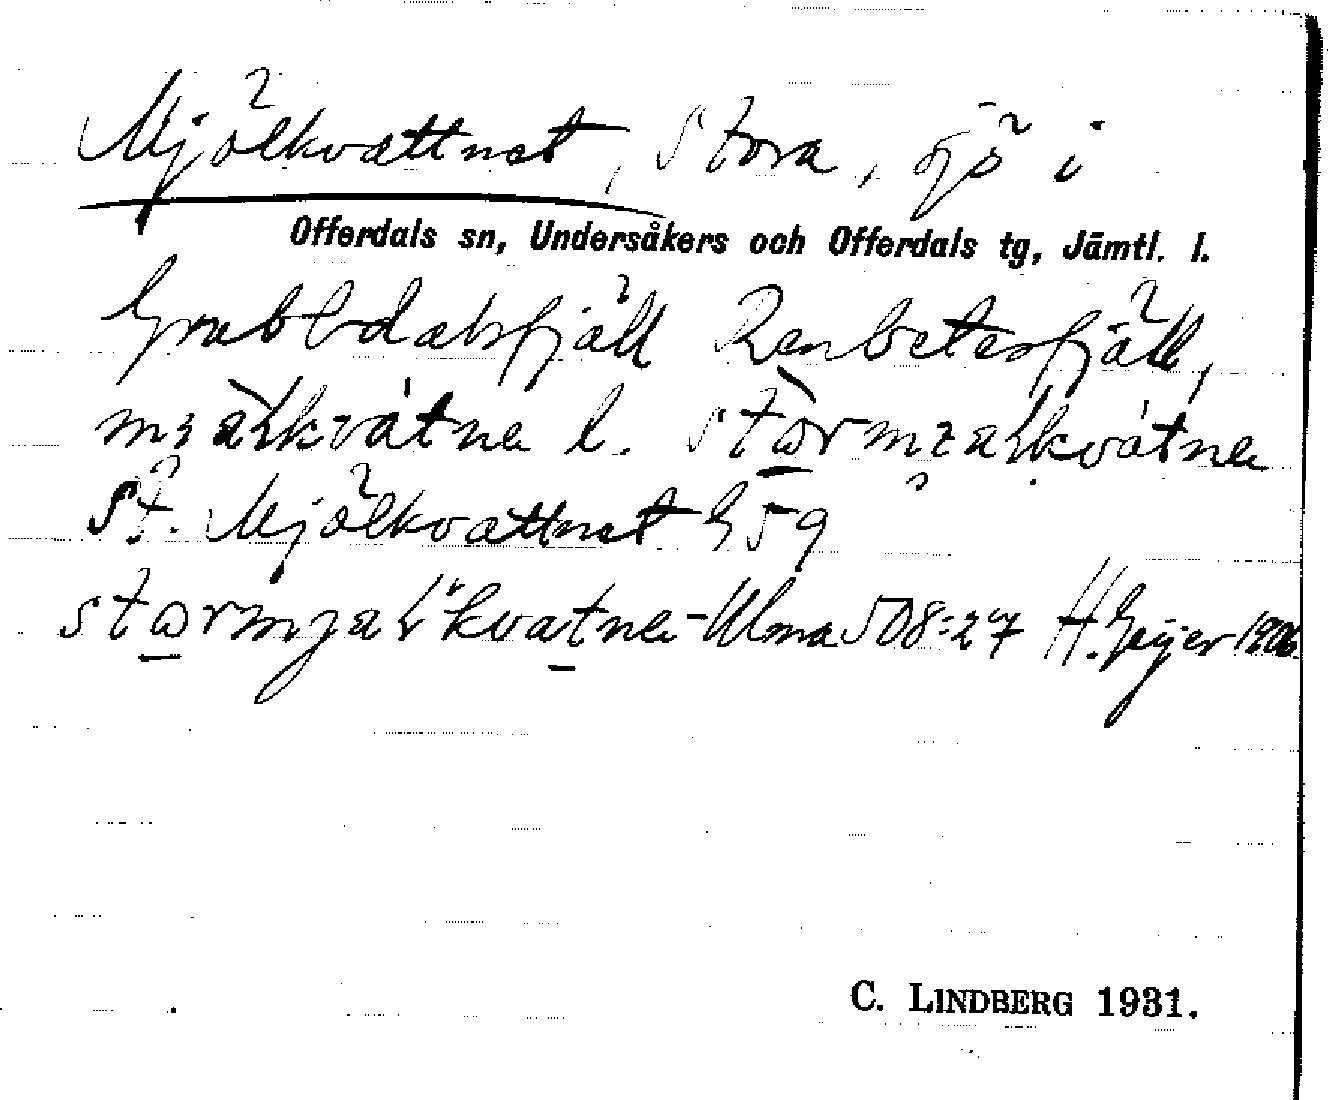 Mjölkvattnet, Stora, sjö i
Offerdals sn, Undersåkers och Offerdals tg, Jämtl. l.
Grubbdalsfjäll Renbetesfjäll,
l.
St. Mjölkvattnet G59
Ulma 508:27 H. Geijer 1906
C. LINDBERG 1931.